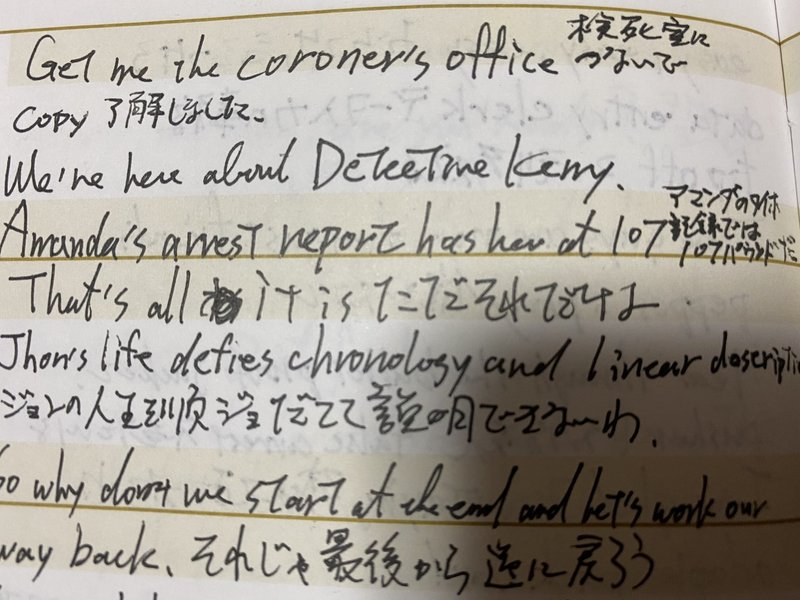 Get me the coroner's office 検死室に
つないで
copy 了解しました。
We're here about Detective Kerry.
Amanda's arrest report has her at 107 アマンダの身体
記録では
107パウンドだ
That's all it is ただそれだけよ
Jhon's life defies chronology and linear descripti
ジョンの人生を順序だてて説明できないわ.
So why don't we start at the end and let's work our
way back. それじゃ最後から逆に戻ろう